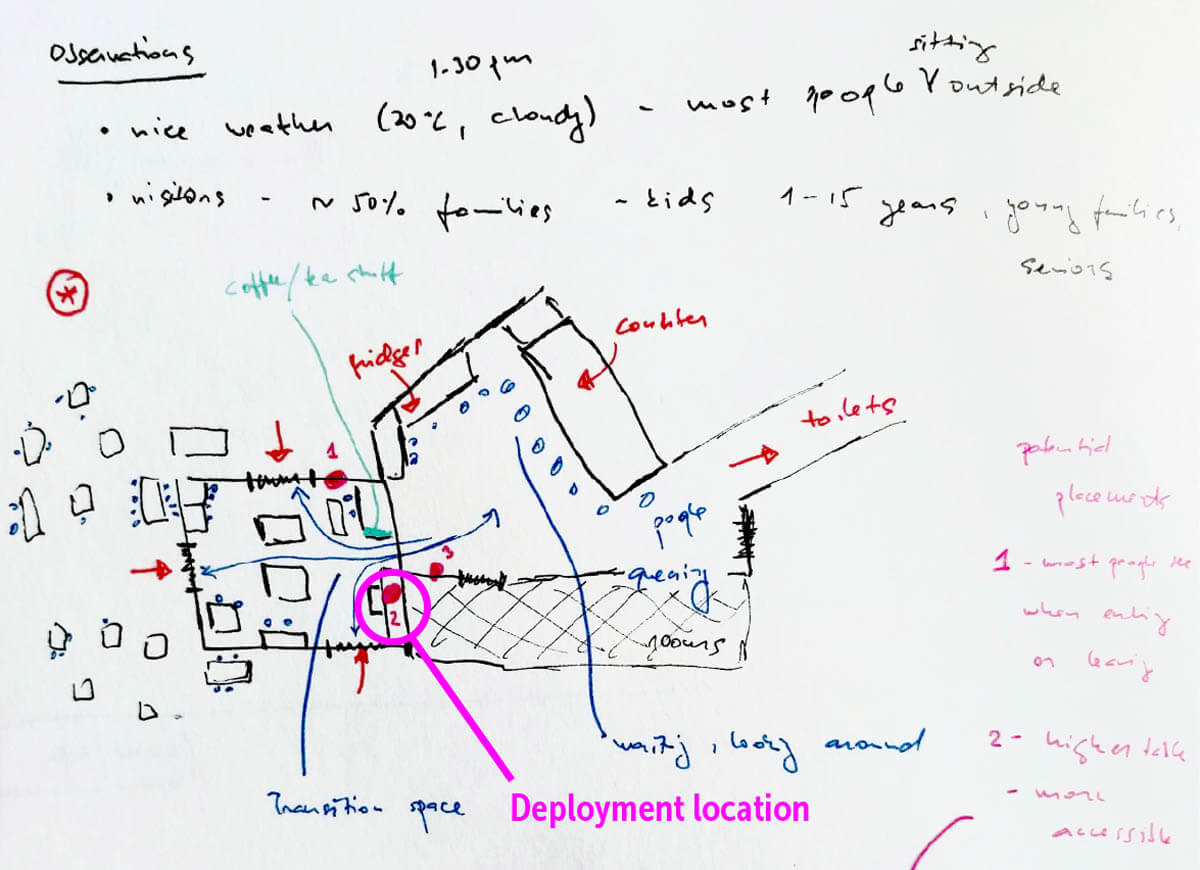 Observations
1.30 pm
sitting
• nice weather (20°C, cloudy) - most people V outside
• visitors - ~ 50% families - kids 1-15 years, young families,
seniors
*
coffee/tea stuff
fridges
counter
toilets
1
people
queuing
3
2
rooms
waiting, looking around
Transition space
Deployment location
potential
placements
1 - most people see
when entering
or leaving
2 - higher table
- more
accessible